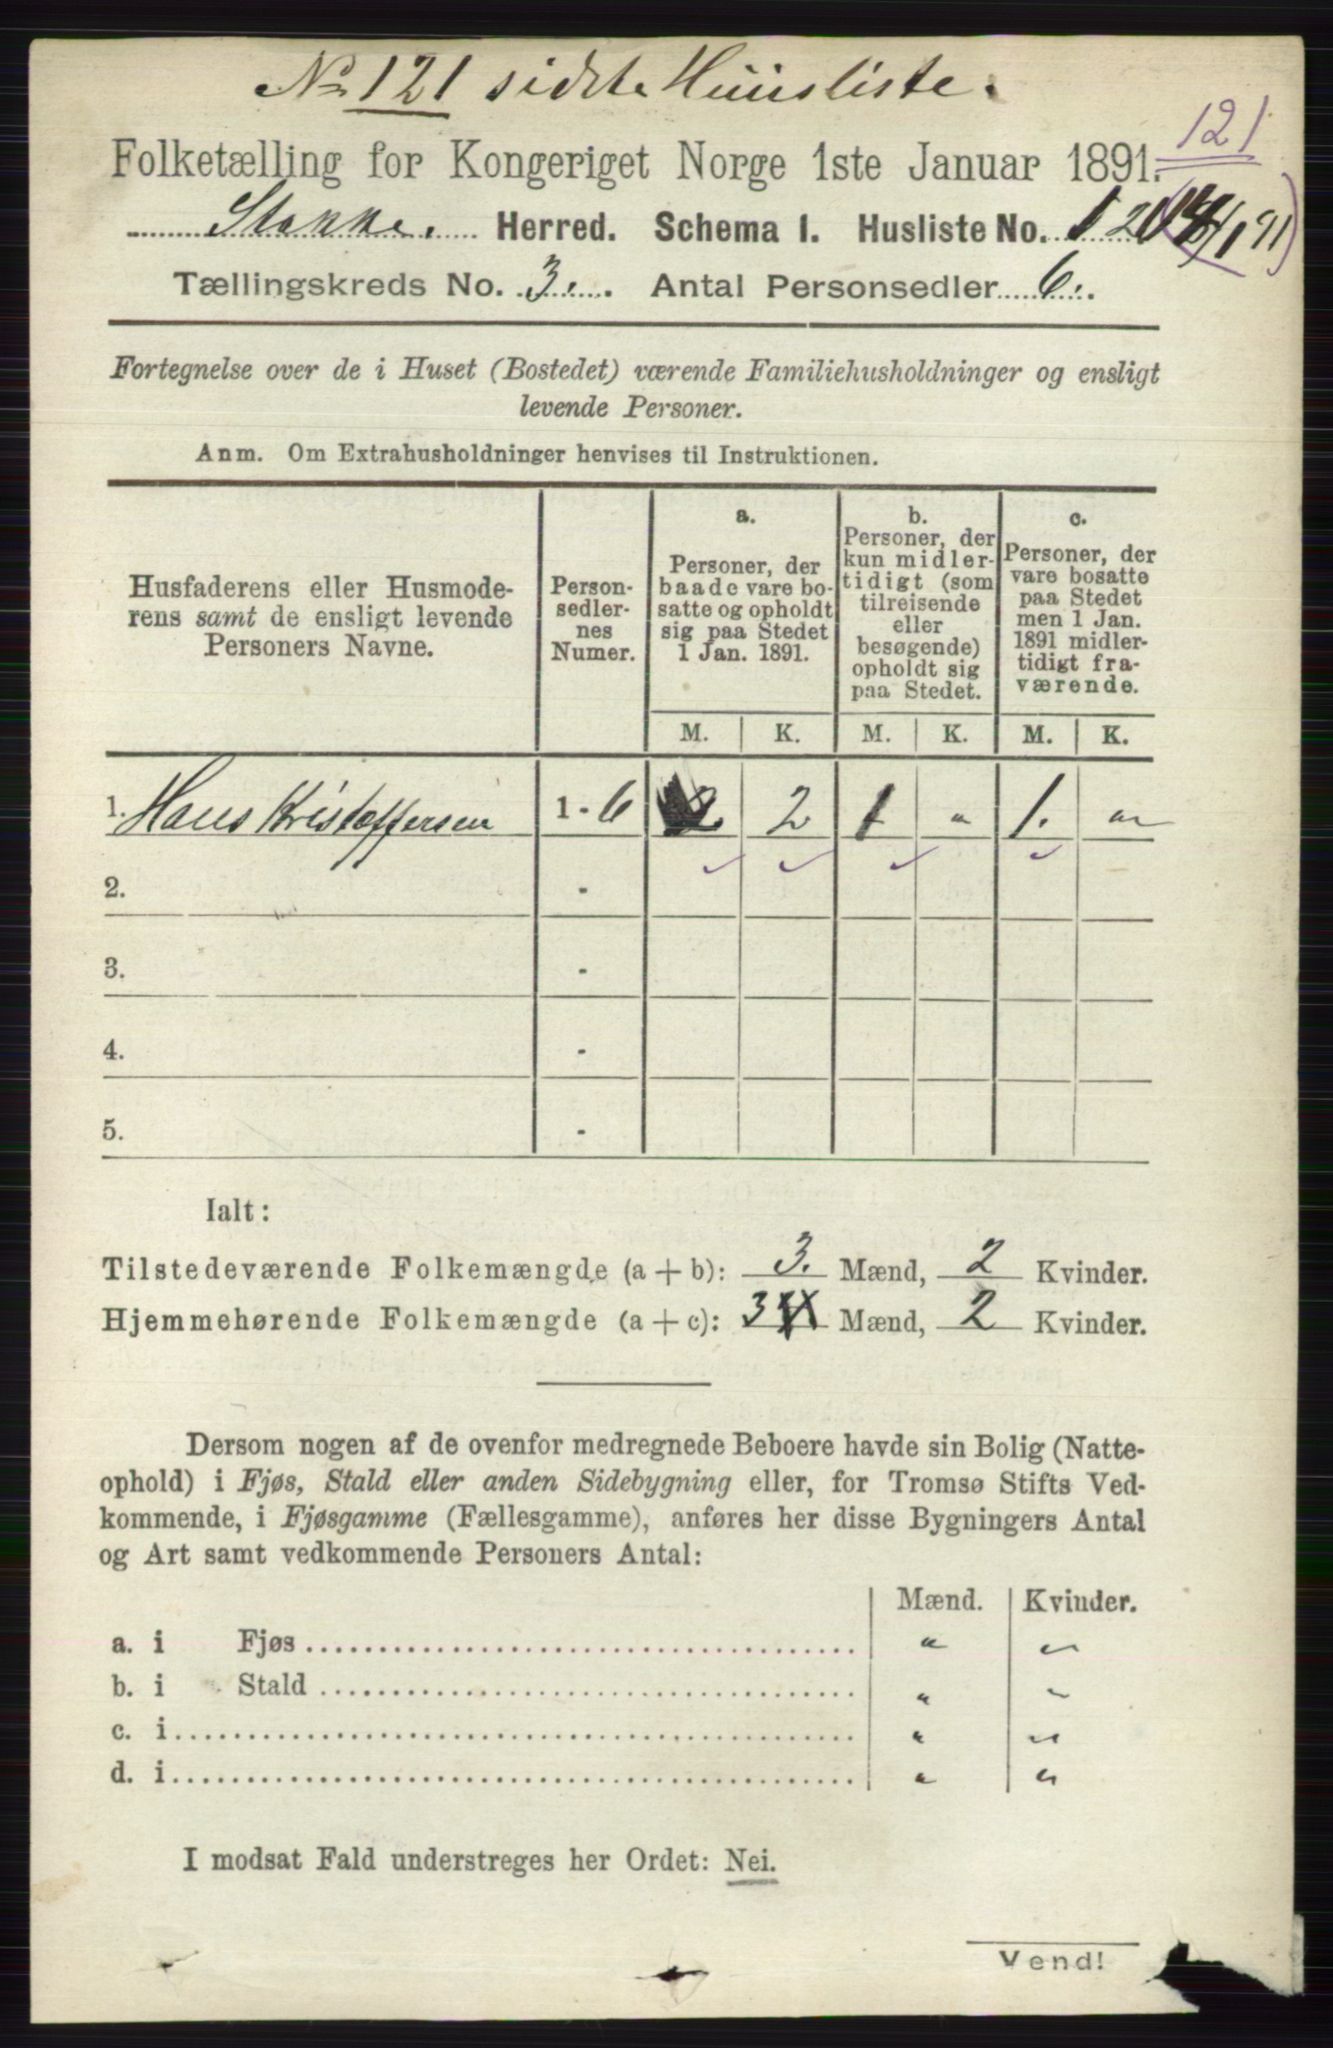 No 121 sidste Huusliste.
121
Folketælling for Kongeriget Norge 1ste Januar 1891.
Stokke. Herred. Schema I. Husliste No. 12
Tællingskreds No. 3. Antal Personsedler 6.
Fortegnelse over de i Huset (Bostedet) værende Familiehusholdninger og ensligt
levende Personer.
Anm. Om Extrahusholdninger henvises til Instruktionen.
Husfaderens eller Husmode-
rens samt de ensligt levende
Personers Navne.
Person-
sedler-
nes
Numer.
a.
Personer, der
baade vare bo-
satte og opholdt
sig paa Stedet
1 Jan. 1891.
b.
Personer, der
kun midler-
tidigt (som
tilreisende
eller
besøgende)
opholdt sig
paa Stedet.
c.
Personer, der
vare bosatte
paa Stedet
men 1 Jan.
1891 midler-
tidigt fra-
værende.
M. K. M. K. M. K.
1. Hans Kristoffersen 1 - 6 2 2 1 " 1. "
2. -
3. -
4. -
5. -
Ialt:
Tilstedeværende Folkemængde (a + b): 3. Mænd, 2 Kvinder.
Hjemmehørende Folkemængde (a + c): 3 Mænd, 2 Kvinder.
Dersom nogen af de ovenfor medregnede Beboere havde sin Bolig (Natte-
ophold) i Fjøs, Stald eller anden Sidebygning eller, for Tromsø Stifts Ved-
kommende, i Fjøsgamme (Fællesgamme), anføres her disse Bygningers Antal
og Art samt vedkommende Personers Antal:
Mænd. Kvinder.
a. i Fjøs " "
b. i Stald " "
c. i " "
d. i " "
I modsat Fald understreges her Ordet: Nei.
Vend!